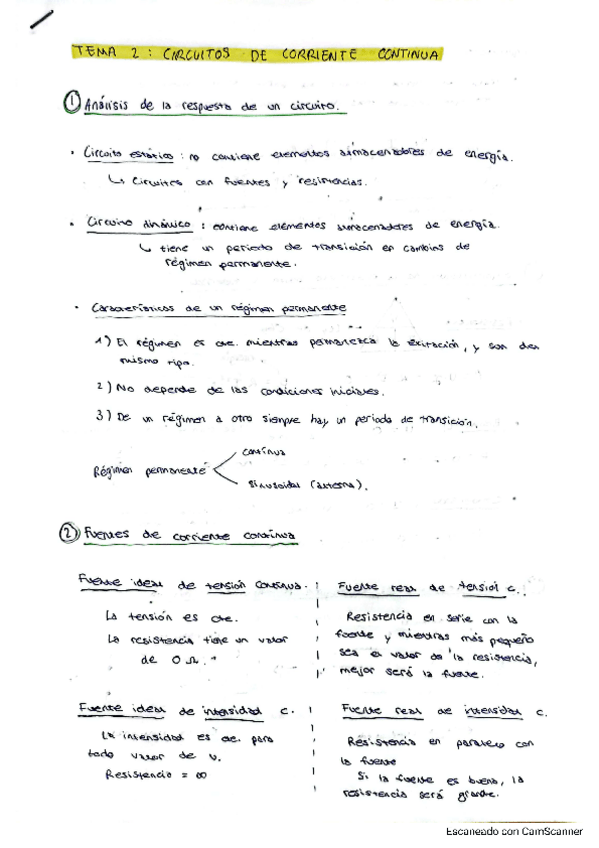 TEMA 2: CIRCUITOS DE CORRIENTE CONTINUA
1 Análisis de la respuesta de un circuito.
• Circuito estático: no contiene elementos almacenadores de energía.
↳ Circuitos con fuentes y resistencias.
• Circuito dinámico: contiene elementos almacenadores de energía.
↳ tiene un periodo de transición en cambios de
régimen permanente.
• Características de un régimen permanente
1) El régimen es cte. mientras permanezca la exitación, y son del
mismo tipo.
2) No depende de las condiciones iniciales.
3) De un régimen a otro siempre hay un periodo de transición.
continua
Régimen permanente
Sinusoidal (alterna).
2 Fuentes de corriente continua
Fuente ideal de tensión continua.
La tensión es cte.
La resistencia tiene un valor
de 0 Ω.
Fuente real de tensión c.
Resistencia en serie con la
fuente y mientras más pequeño
sea el valor de la resistencia,
mejor será la fuente.
Fuente ideal de intensidad c.
La intensidad es cte. para
todo valor de v.
Resistencia = ∞
Fuente real de intensidad c.
Resistencia en paralelo con
la fuente
Si la fuente es buena, la
resistencia será grande.
Escaneado con CamScanner